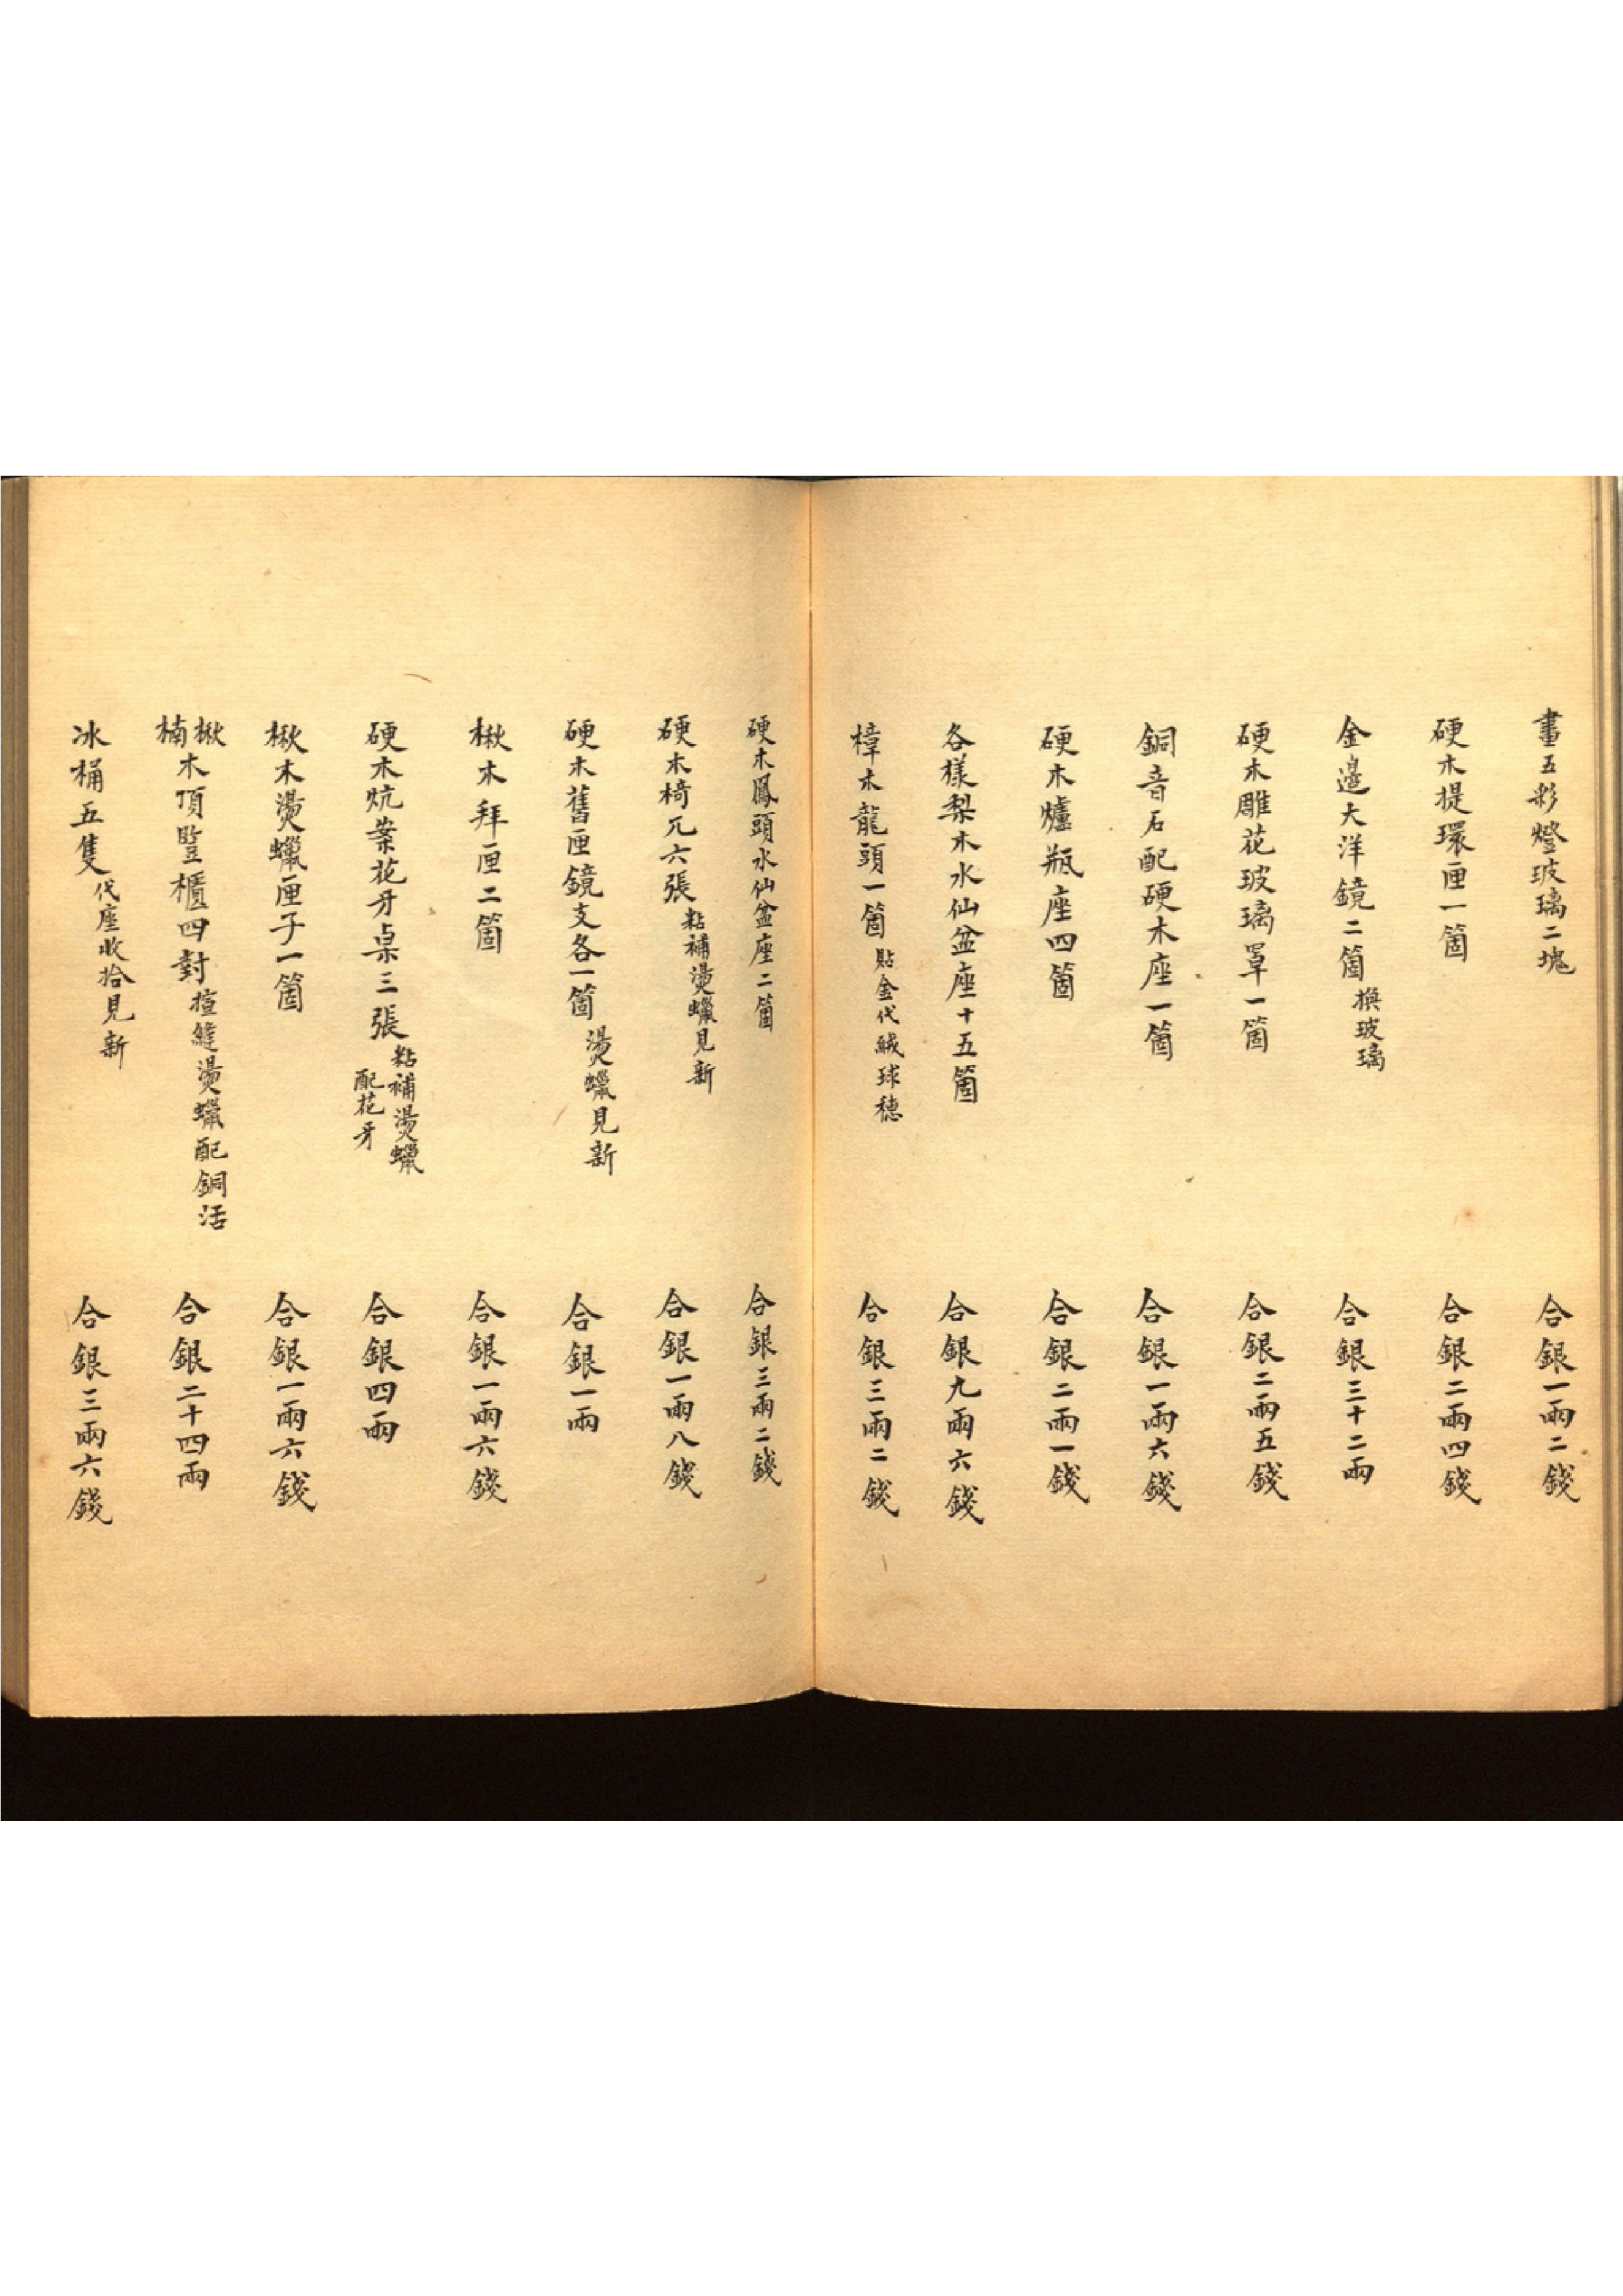 畫五彩燈玻璃二塊 合銀一兩二錢
硬木提環匣一箇 合銀二兩四錢
金邊大洋鏡二箇 換玻璃 合銀三十二兩
硬木雕花玻璃罩一箇 合銀二兩五錢
銅音石配硬木座一箇 合銀一兩六錢
硬木爐瓶座四箇 合銀二兩一錢
各樣梨木水仙盆座十五箇 合銀九兩六錢
樟木龍頭一箇 貼金代絨球穗 合銀三兩二錢
硬木鳳頭水仙盆座二箇 合銀三兩二錢
硬木椅兀六張 粘補燙蠟見新 合銀一兩八錢
硬木舊匣鏡支各一箇 燙蠟見新 合銀一兩
楸木拜匣二箇 合銀一兩六錢
硬木炕案花牙桌三張 粘補燙蠟配花牙 合銀四兩
楸木燙蠟匣子一箇 合銀一兩六錢
楸楠木頂豎櫃四對 揎縫燙蠟配銅活 合銀二十四兩
冰桶五隻 代座收拾見新 合銀三兩六錢